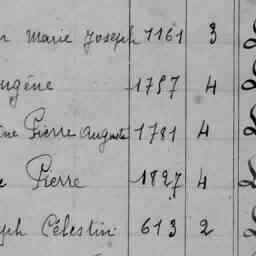 Marie Joseph 1161 3
ugène 1757 4
Pierre Auguste 1781 4
Pierre 1827 4
ph Célestin 613 2